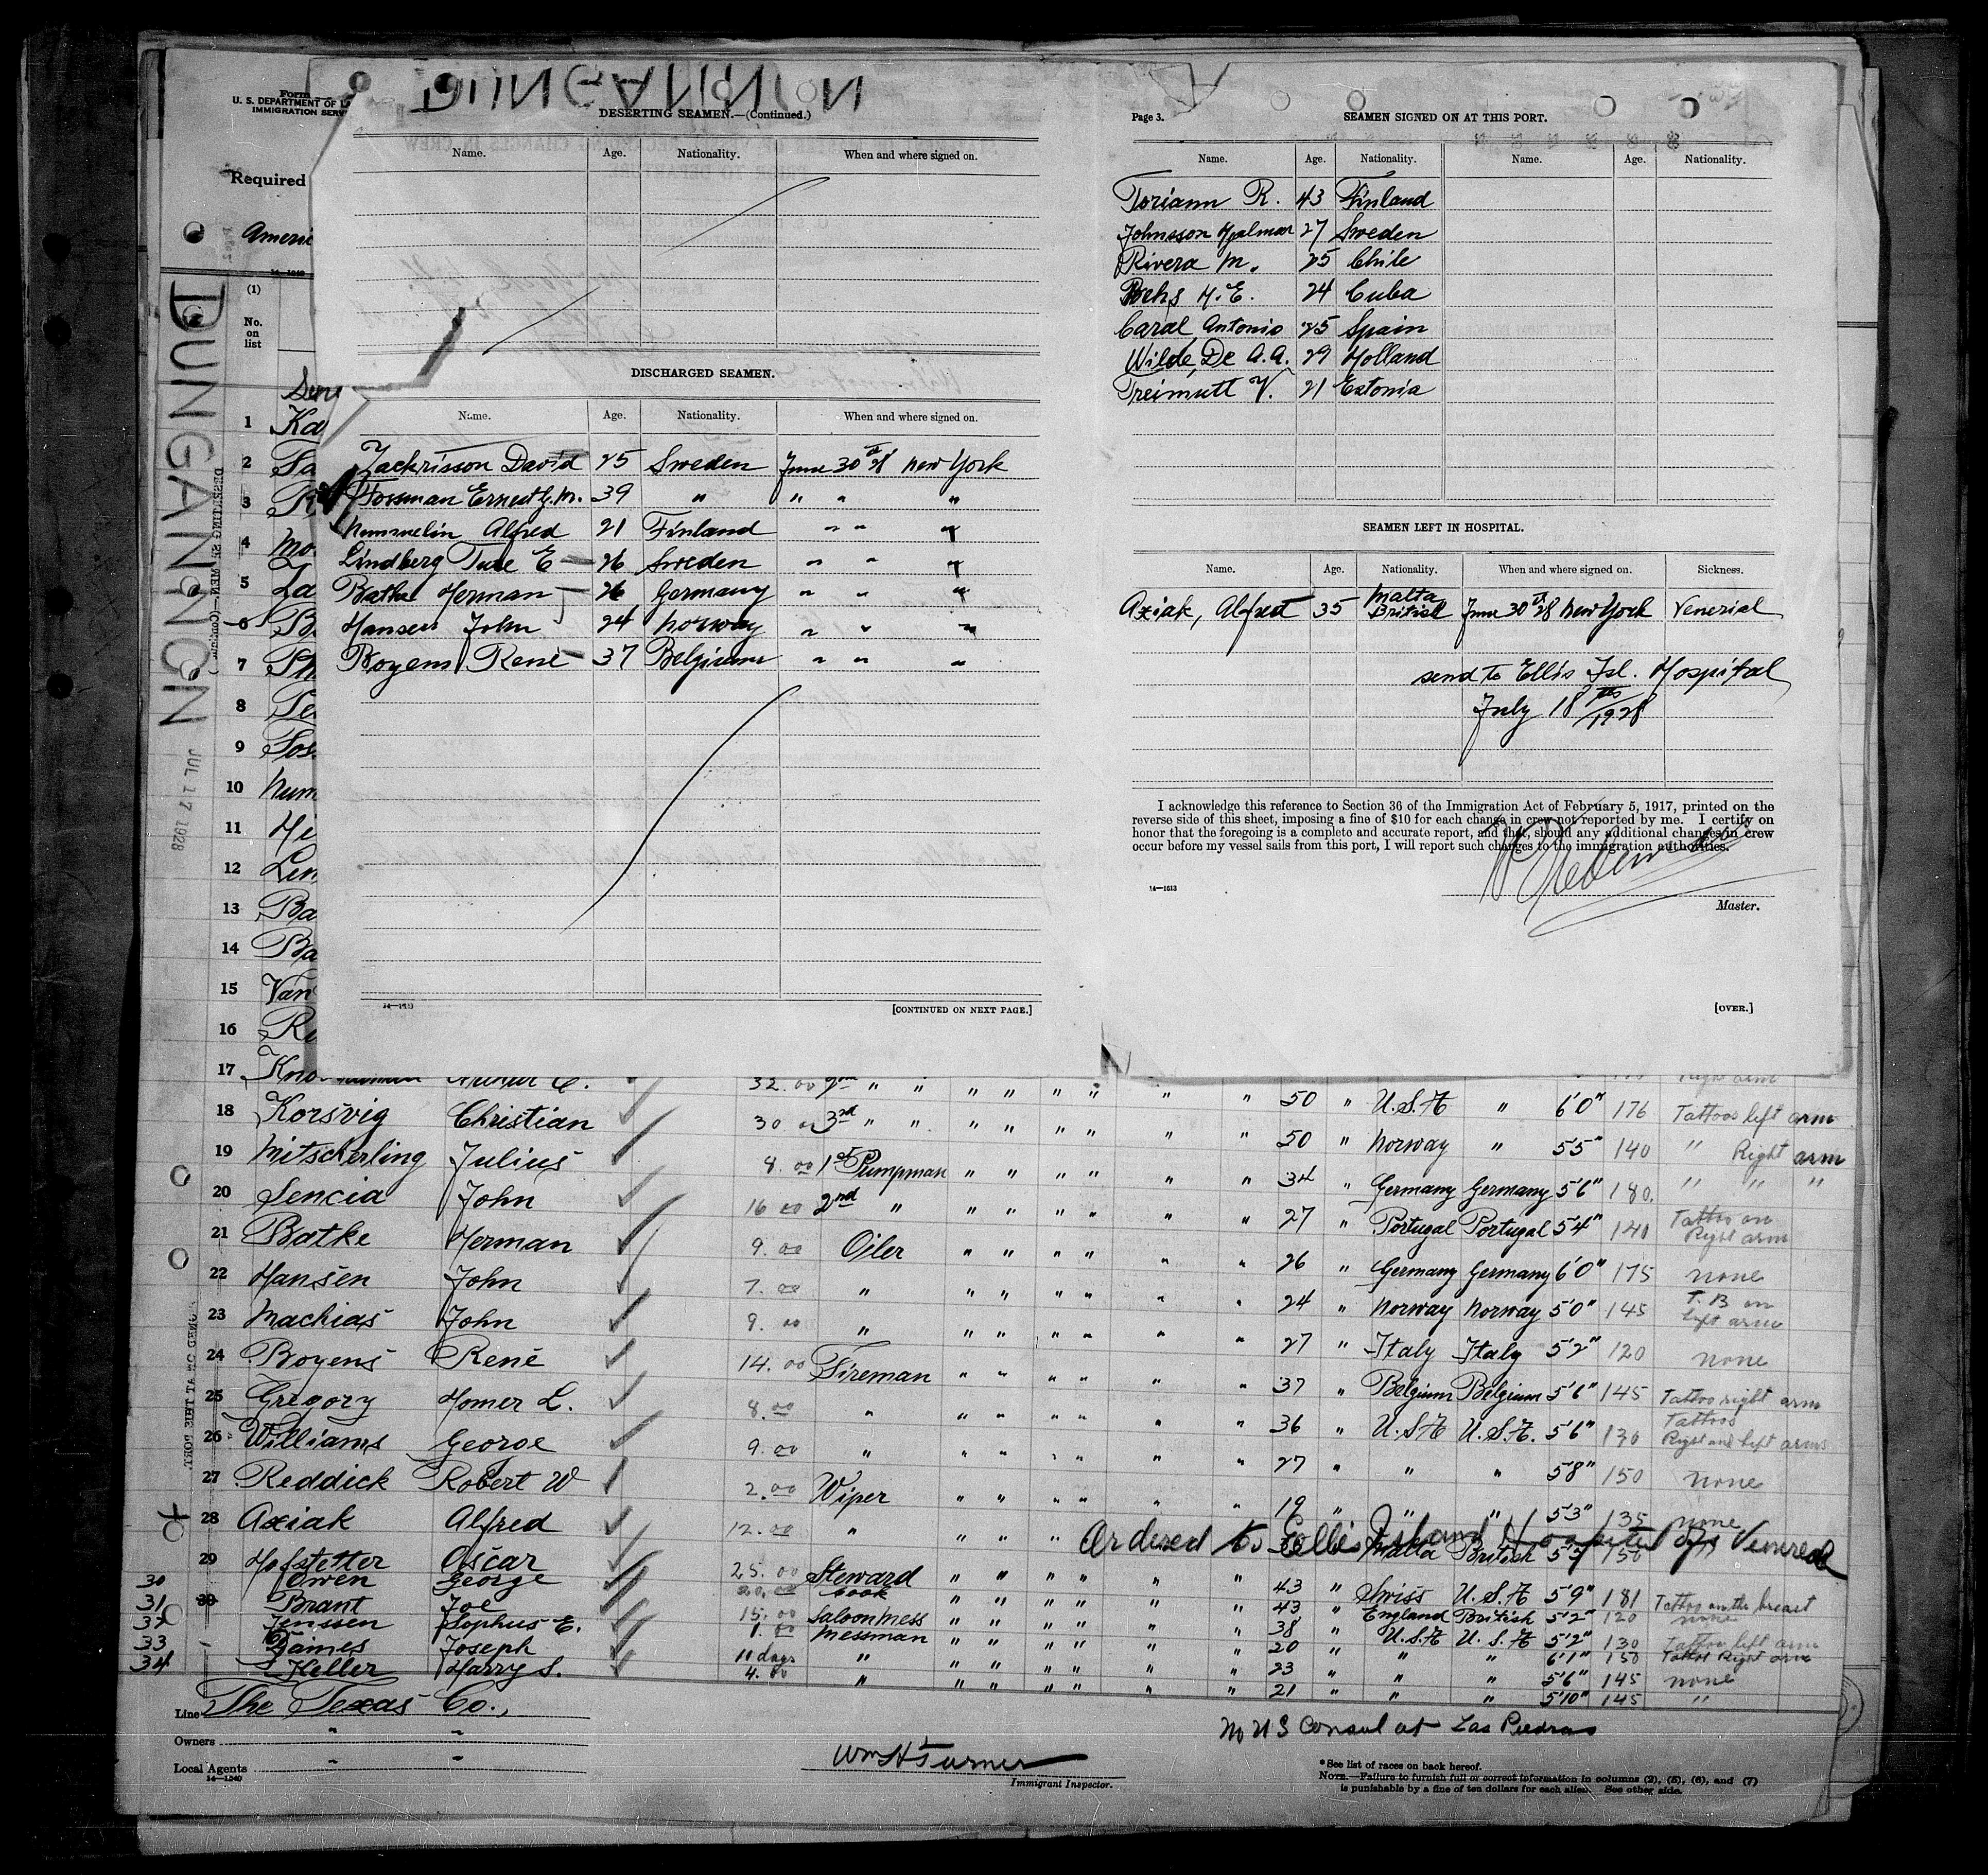 DUNGANNON
Form
U. S. DEPARTMENT OF L
IMMIGRATION SERV
Required
Ameri
14—1640
(1)
No. on list
DUNGANNON
JUL 17 1928
DESERTING SEAMEN.—(Continued.)
Name. Age. Nationality. When and where signed on.
DISCHARGED SEAMEN.
Name. Age. Nationality. When and where signed on.
Zackrisson David 25 Sweden June 30th 28 New York
Fossman Ernest G. M. 39 " " " "
Nummelin Alfred 21 Finland " " "
Lindberg Ture E 26 Sweden " " "
Batke Herman 26 Germany " " "
Hansen John 24 Norway " " "
Boyens René 37 Belgium " " "
14—1613
[CONTINUED ON NEXT PAGE.]
Page 3.
SEAMEN SIGNED ON AT THIS PORT.
Name. Age. Nationality. Name. Age. Nationality.
Toriann R. 43 Finland
Johnsson Hjalmar 27 Sweden
Rivera M. 25 Chile
H. E. 24 Cuba
Caral, Antonio 25 Spain
Wilde, De A. A. 29 Holland
Treimutt V. 21 Estonia
SEAMEN LEFT IN HOSPITAL.
Name. Age. Nationality. When and where signed on. Sickness.
Axiak, Alfred 35 Malta British June 30th 28 New York Venerial
send to Ellis Isl. Hospital
July 18th 1928
I acknowledge this reference to Section 36 of the Immigration Act of February 5, 1917, printed on the
reverse side of this sheet, imposing a fine of $10 for each change in crew not reported by me. I certify on
honor that the foregoing is a complete and accurate report, and that, should any additional changes in crew
occur before my vessel sails from this port, I will report such changes to the immigration authorities.
14—1613
Master.
[OVER.]
1 Ka
2 Ta
3
4 Mo
5 La
6 B
7
8 Se
9 Fos
10 Num
11 Hi
12 Lin
13 Ba
14 Ba
15 Van
16 Ri
17 Kno Arthur C. 32.00 2nd " " " " " " " " 50 " U.S.A " 6'0" 176 Tattoos left arm
18 Korsvig Christian 30.00 3rd " " " " " " " " 50 " Norway " 5'5" 140 " Right arm
19 Mitscherling Julius 8.00 1st Pumpman " " " " " " 34 " Germany Germany 5'6" 180. " " "
20 Sencia John 16.00 2nd " " " " " " " 27 " Portugal Portugal 5'4" 140 Tattoo on Right arm
21 Batke Herman 9.00 Oiler " " " " " " 26 " Germany Germany 6'0" 175 none
22 Hansen John 7.00 " " " " " " " 24 " Norway Norway 5'0" 145 T. B on left arm
23 Machias John 9.00 " " " " " " " 27 " Italy Italy 5'2" 120 none
24 Boyens René 14.00 Fireman " " " " " " 37 " Belgium Belgium 5'6" 145 Tattoo right arm
25 Gregory Homer L. 8.00 " " " " " " " 36 " U.S.A U.S.A. 5'6" 130 Tattoos Right and left arms
26 Williams George 9.00 " " " " " " " 27 " " " 5'8" 150 none
27 Reddick Robert W 2.00 Wiper " " " " " " 19 " " " 5'3" 135 none
28 Axiak Alfred 12.00 " " " " " 35 Malta British 5'5" 150 "
Ordered to Ellis Island Hospital Venereal
29 Hofstetter Oscar 25.00 Steward " " " " " " 43 " Swiss U.S.A 5'9" 181 Tattoo on the breast
30 Owen George 20.00 Cook " " " " " " 43 " England British 5'2" 120 none
31 Brant Joe 15.00 Saloon Mess " " " " " " 38 " U.S.A U.S.A 5'2" 130 Tattoo left arm
32 Jenssen Sophus E. 1.00 Messman " " " " " " 20 " " " 6'1" 150 Tattoo Right arm
33 Gaines Joseph 11 days " " " " " " " 23 " " " 5'6" 145 none
34 Heller Harry S. 4.00 " " " " " " " 21 " " " 5'10" 145 "
Line The Texas Co.,
Owners " "
Local Agents " "
14—1240
No U S Consul at Las Piedras
Wm H Turner
Immigrant Inspector.
*See list of races on back hereof.
NOTE.—Failure to furnish full or correct information in columns (2), (5), (6), and (7)
is punishable by a fine of ten dollars for each alien. See other side.